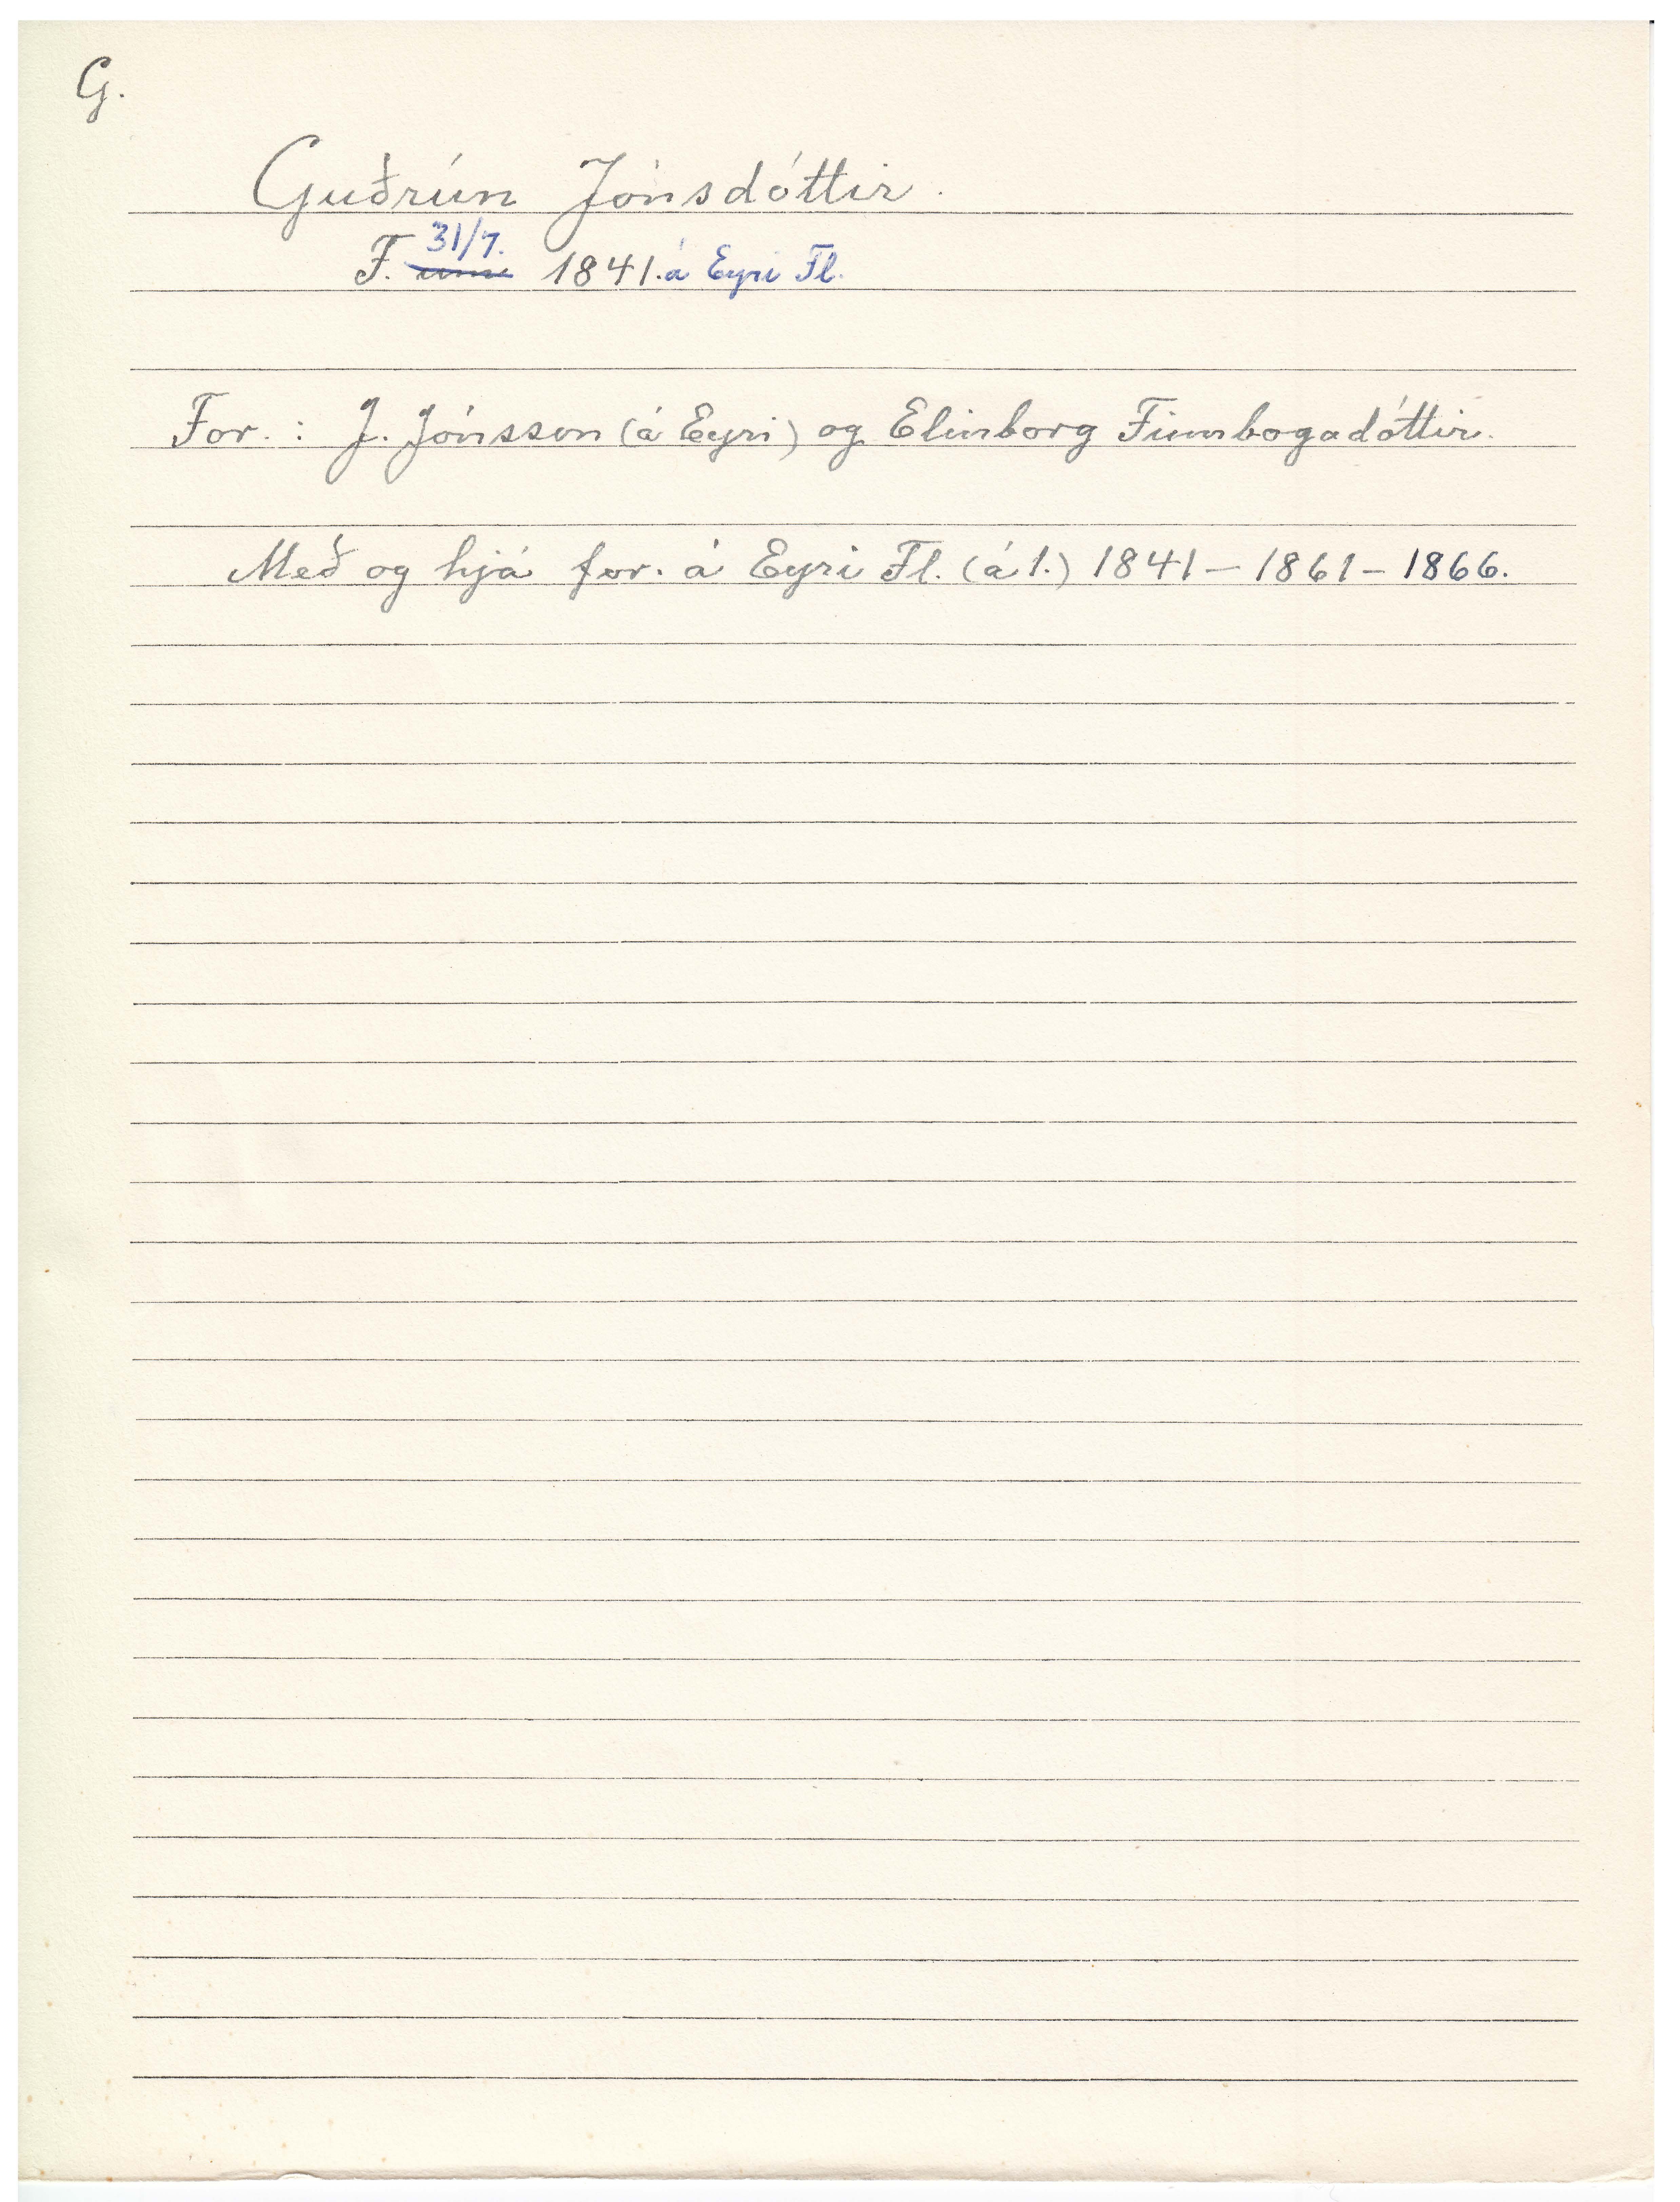 G.
Guðrún Jónsdóttir.
31/7.
F. umr 1841. á Eyri Fl.
For.: J. Jónsson (á Eyri) og Elinborg Finnbogadóttir.
Með og hjá for. á Eyri Fl. (á 1.) 1841 – 1861 – 1866.